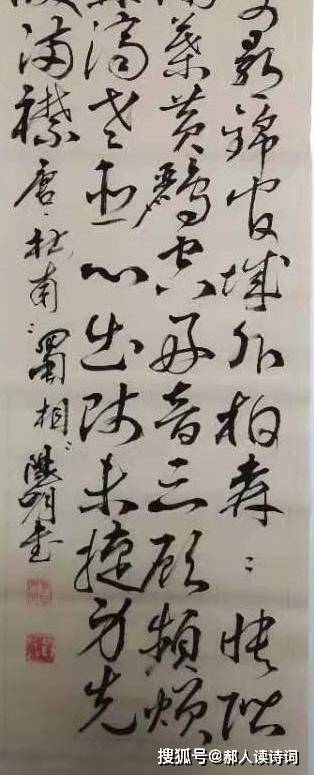 尋錦官城外柏森〻映階
葉黃鸝空好音三顧頻煩
濟老臣心出師未捷身先
滿襟 唐·杜甫蜀相 書
搜狐号@郝人读诗词